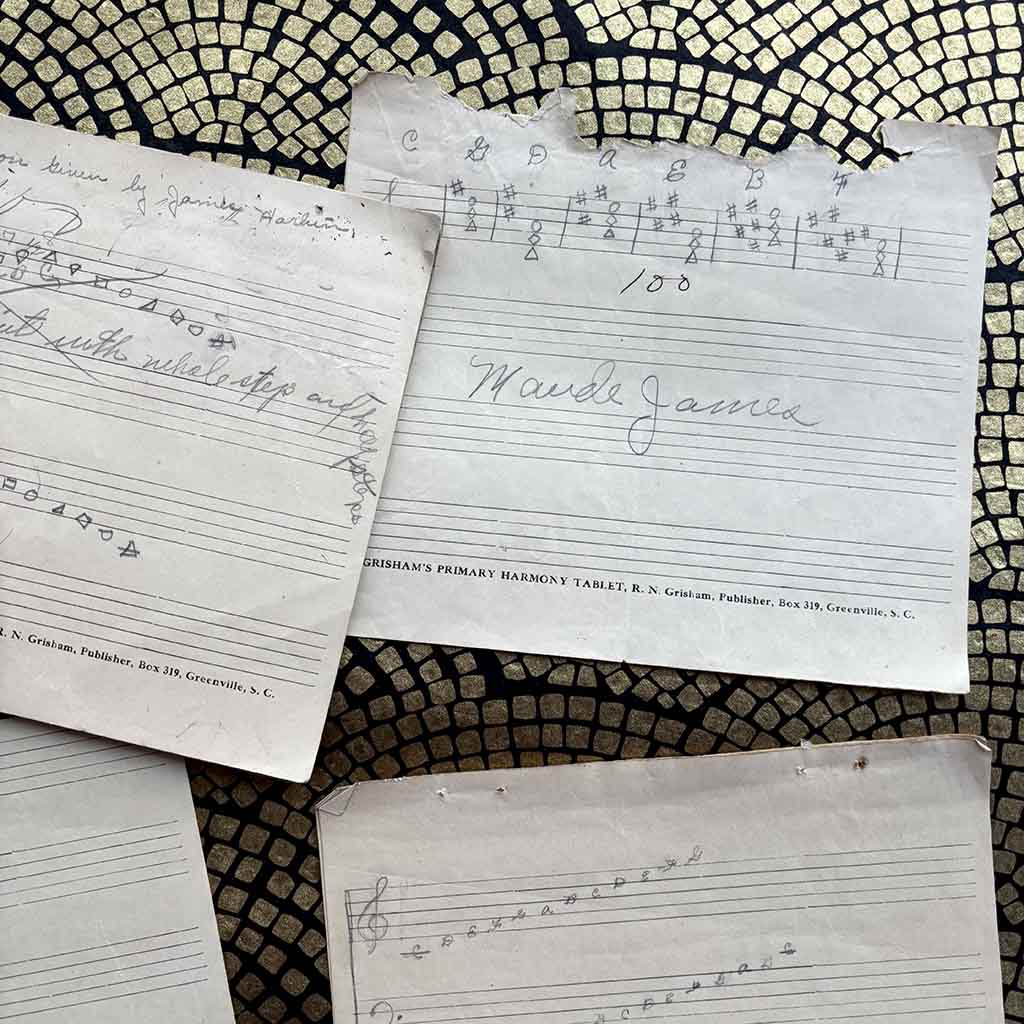 given by James Harbin,
with whole step and
R. N. Grisham, Publisher, Box 319, Greenville, S. C.
C G D A E B F
100
Maude James
GRISHAM'S PRIMARY HARMONY TABLET, R. N. Grisham, Publisher, Box 319, Greenville, S. C.
C D E F G A B C D E F G
C D E F G A B C